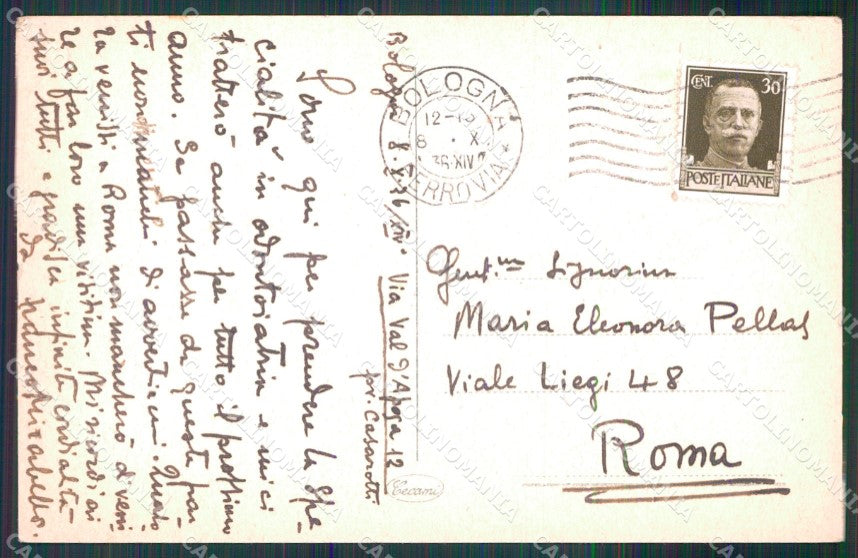 Bologna 8.X.36/XIV° Via Val d'Aposa 12
pr. Casarotti
Sono qui per prendere la Spe-
cialità in odontoiatria e mici
tratterò anche per tutto il prossimo
anno. Se passasse da queste par-
ti non manchi di avvertirmi. Quando
verrò a Roma non mancherò di veni-
re a far loro una visitina. Mi ricordi ai
suoi tutti e gradisca infinite cordialità
da
BOLOGNA
12-
8 . X
36 XIV
FERROVIA
CENT. 30
POSTE ITALIANE
Gent.ma Signorina
Maria Eleonora Pellas
Viale Liegi 48
Roma
Cecami
CARTOLINOMANIA